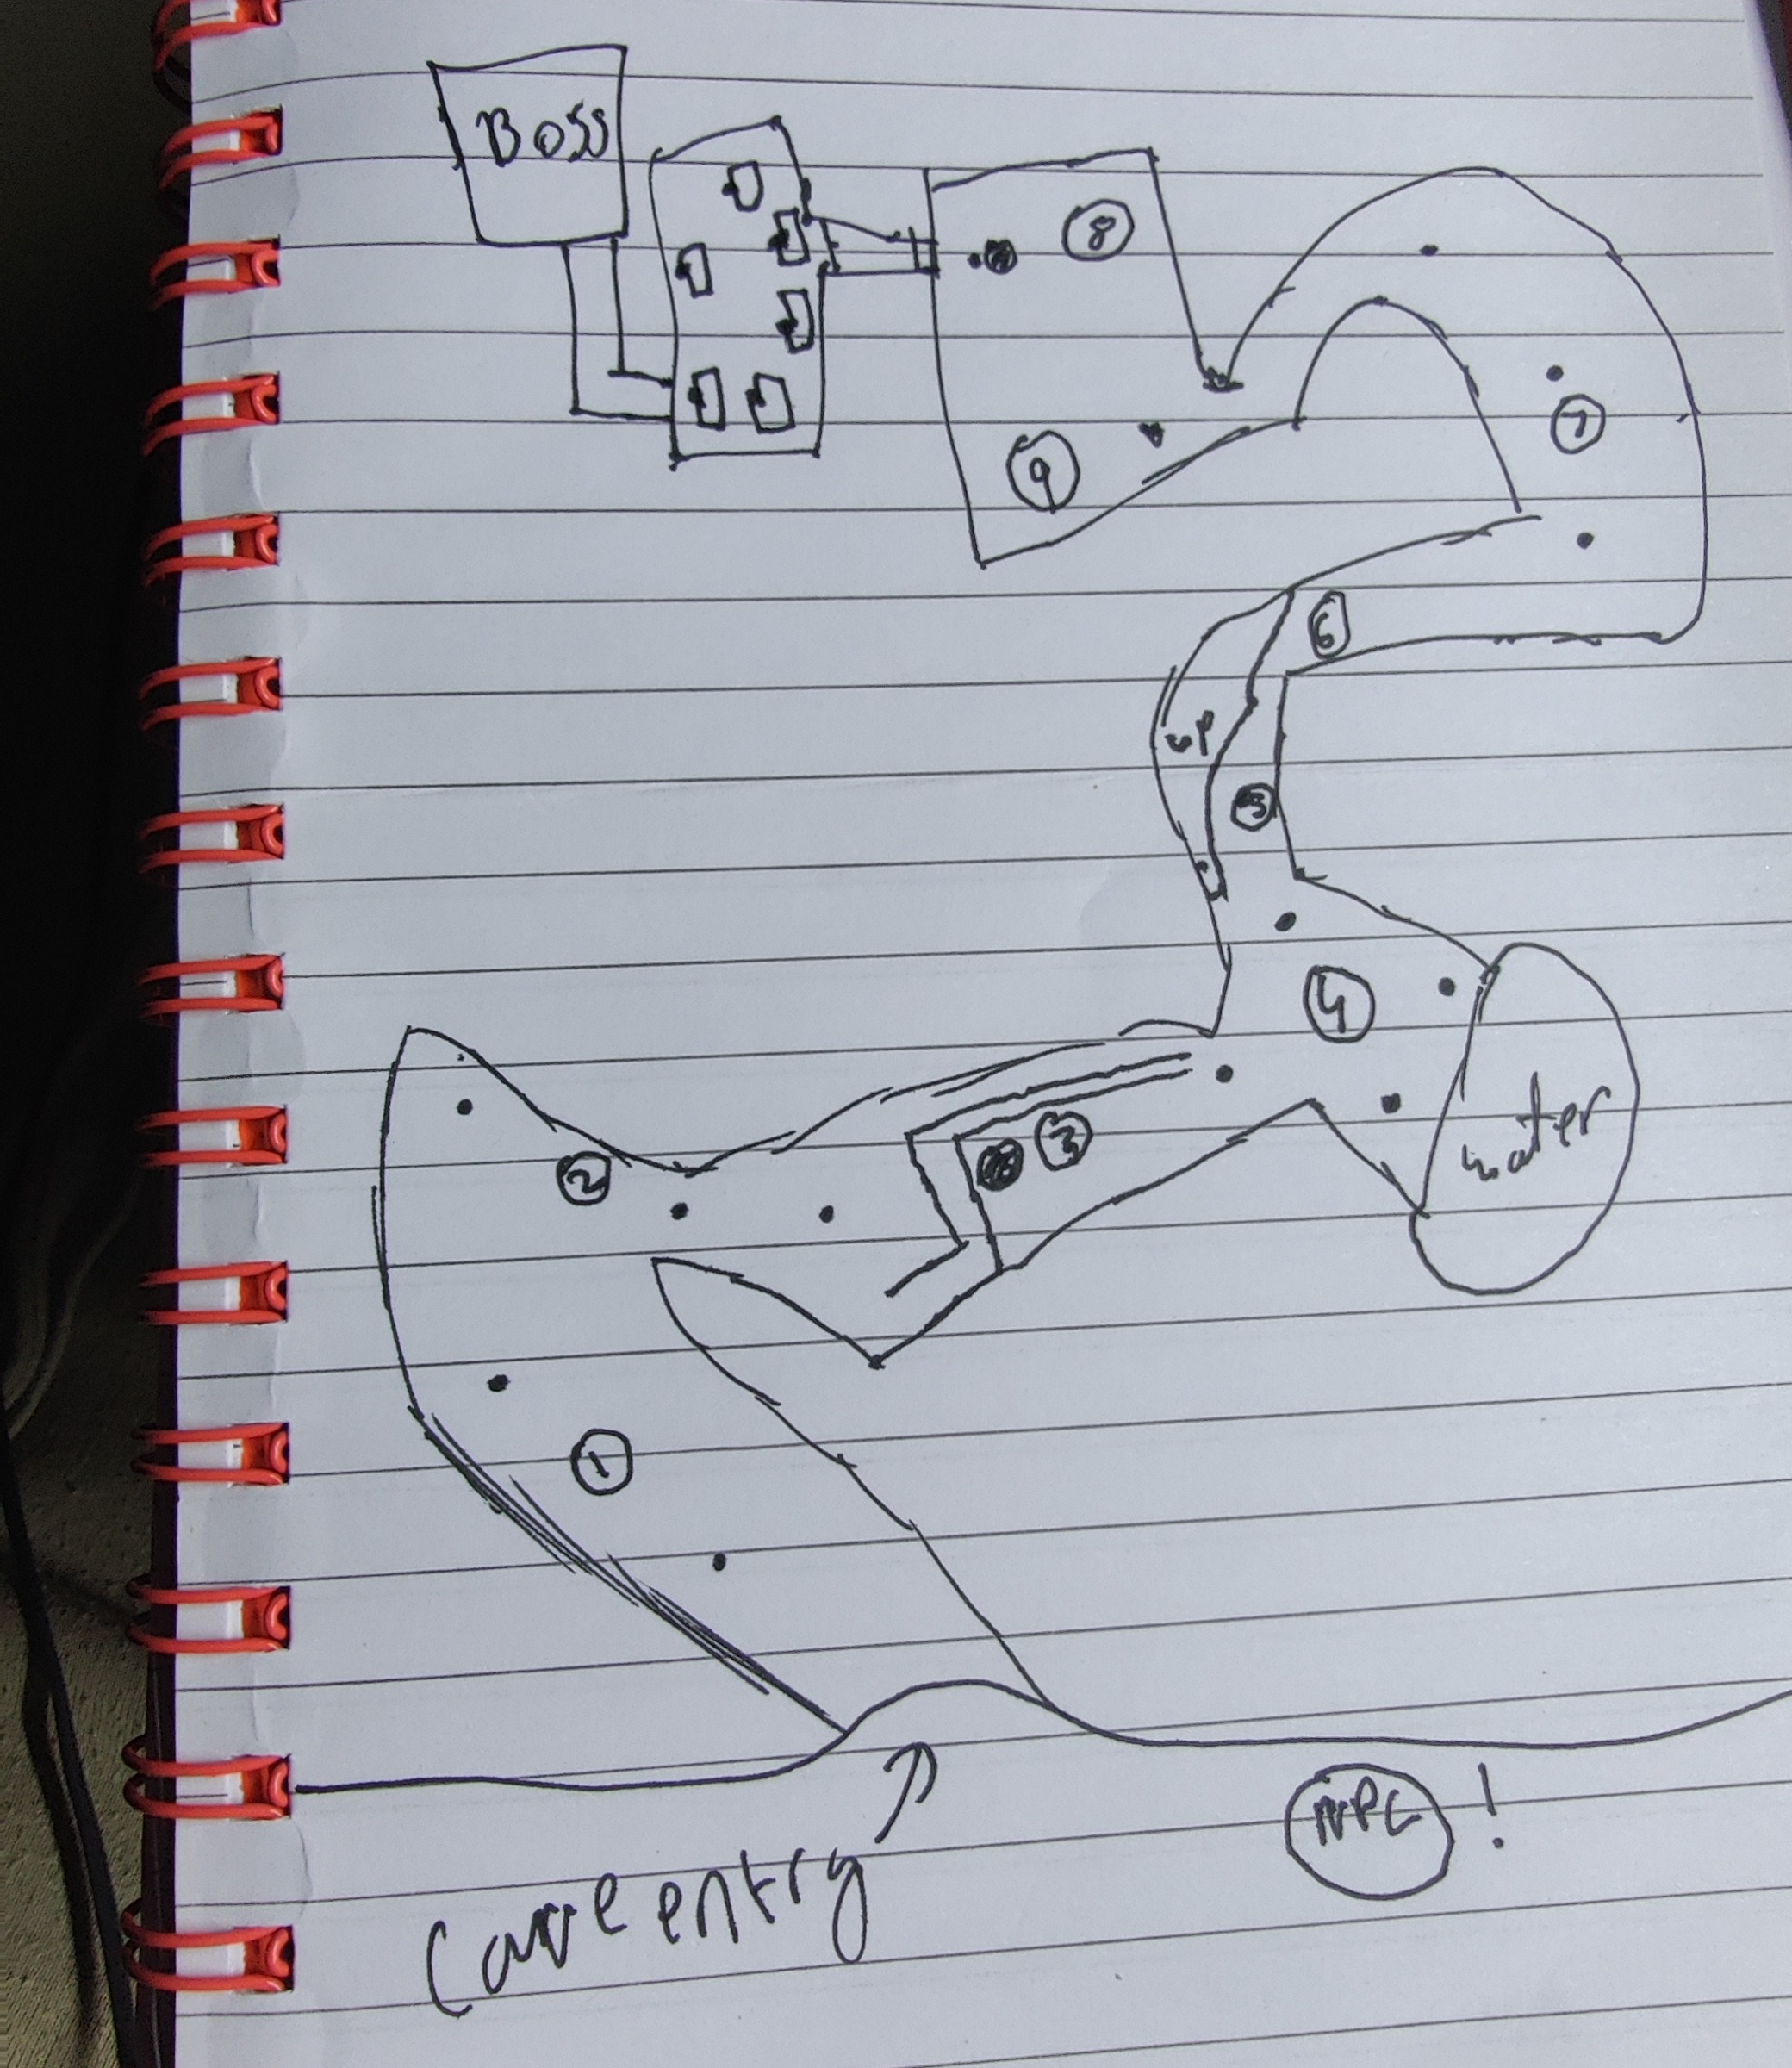 Boss
8
7
9
6
up
5
4
water
3
2
1
NPC !
Cave entry